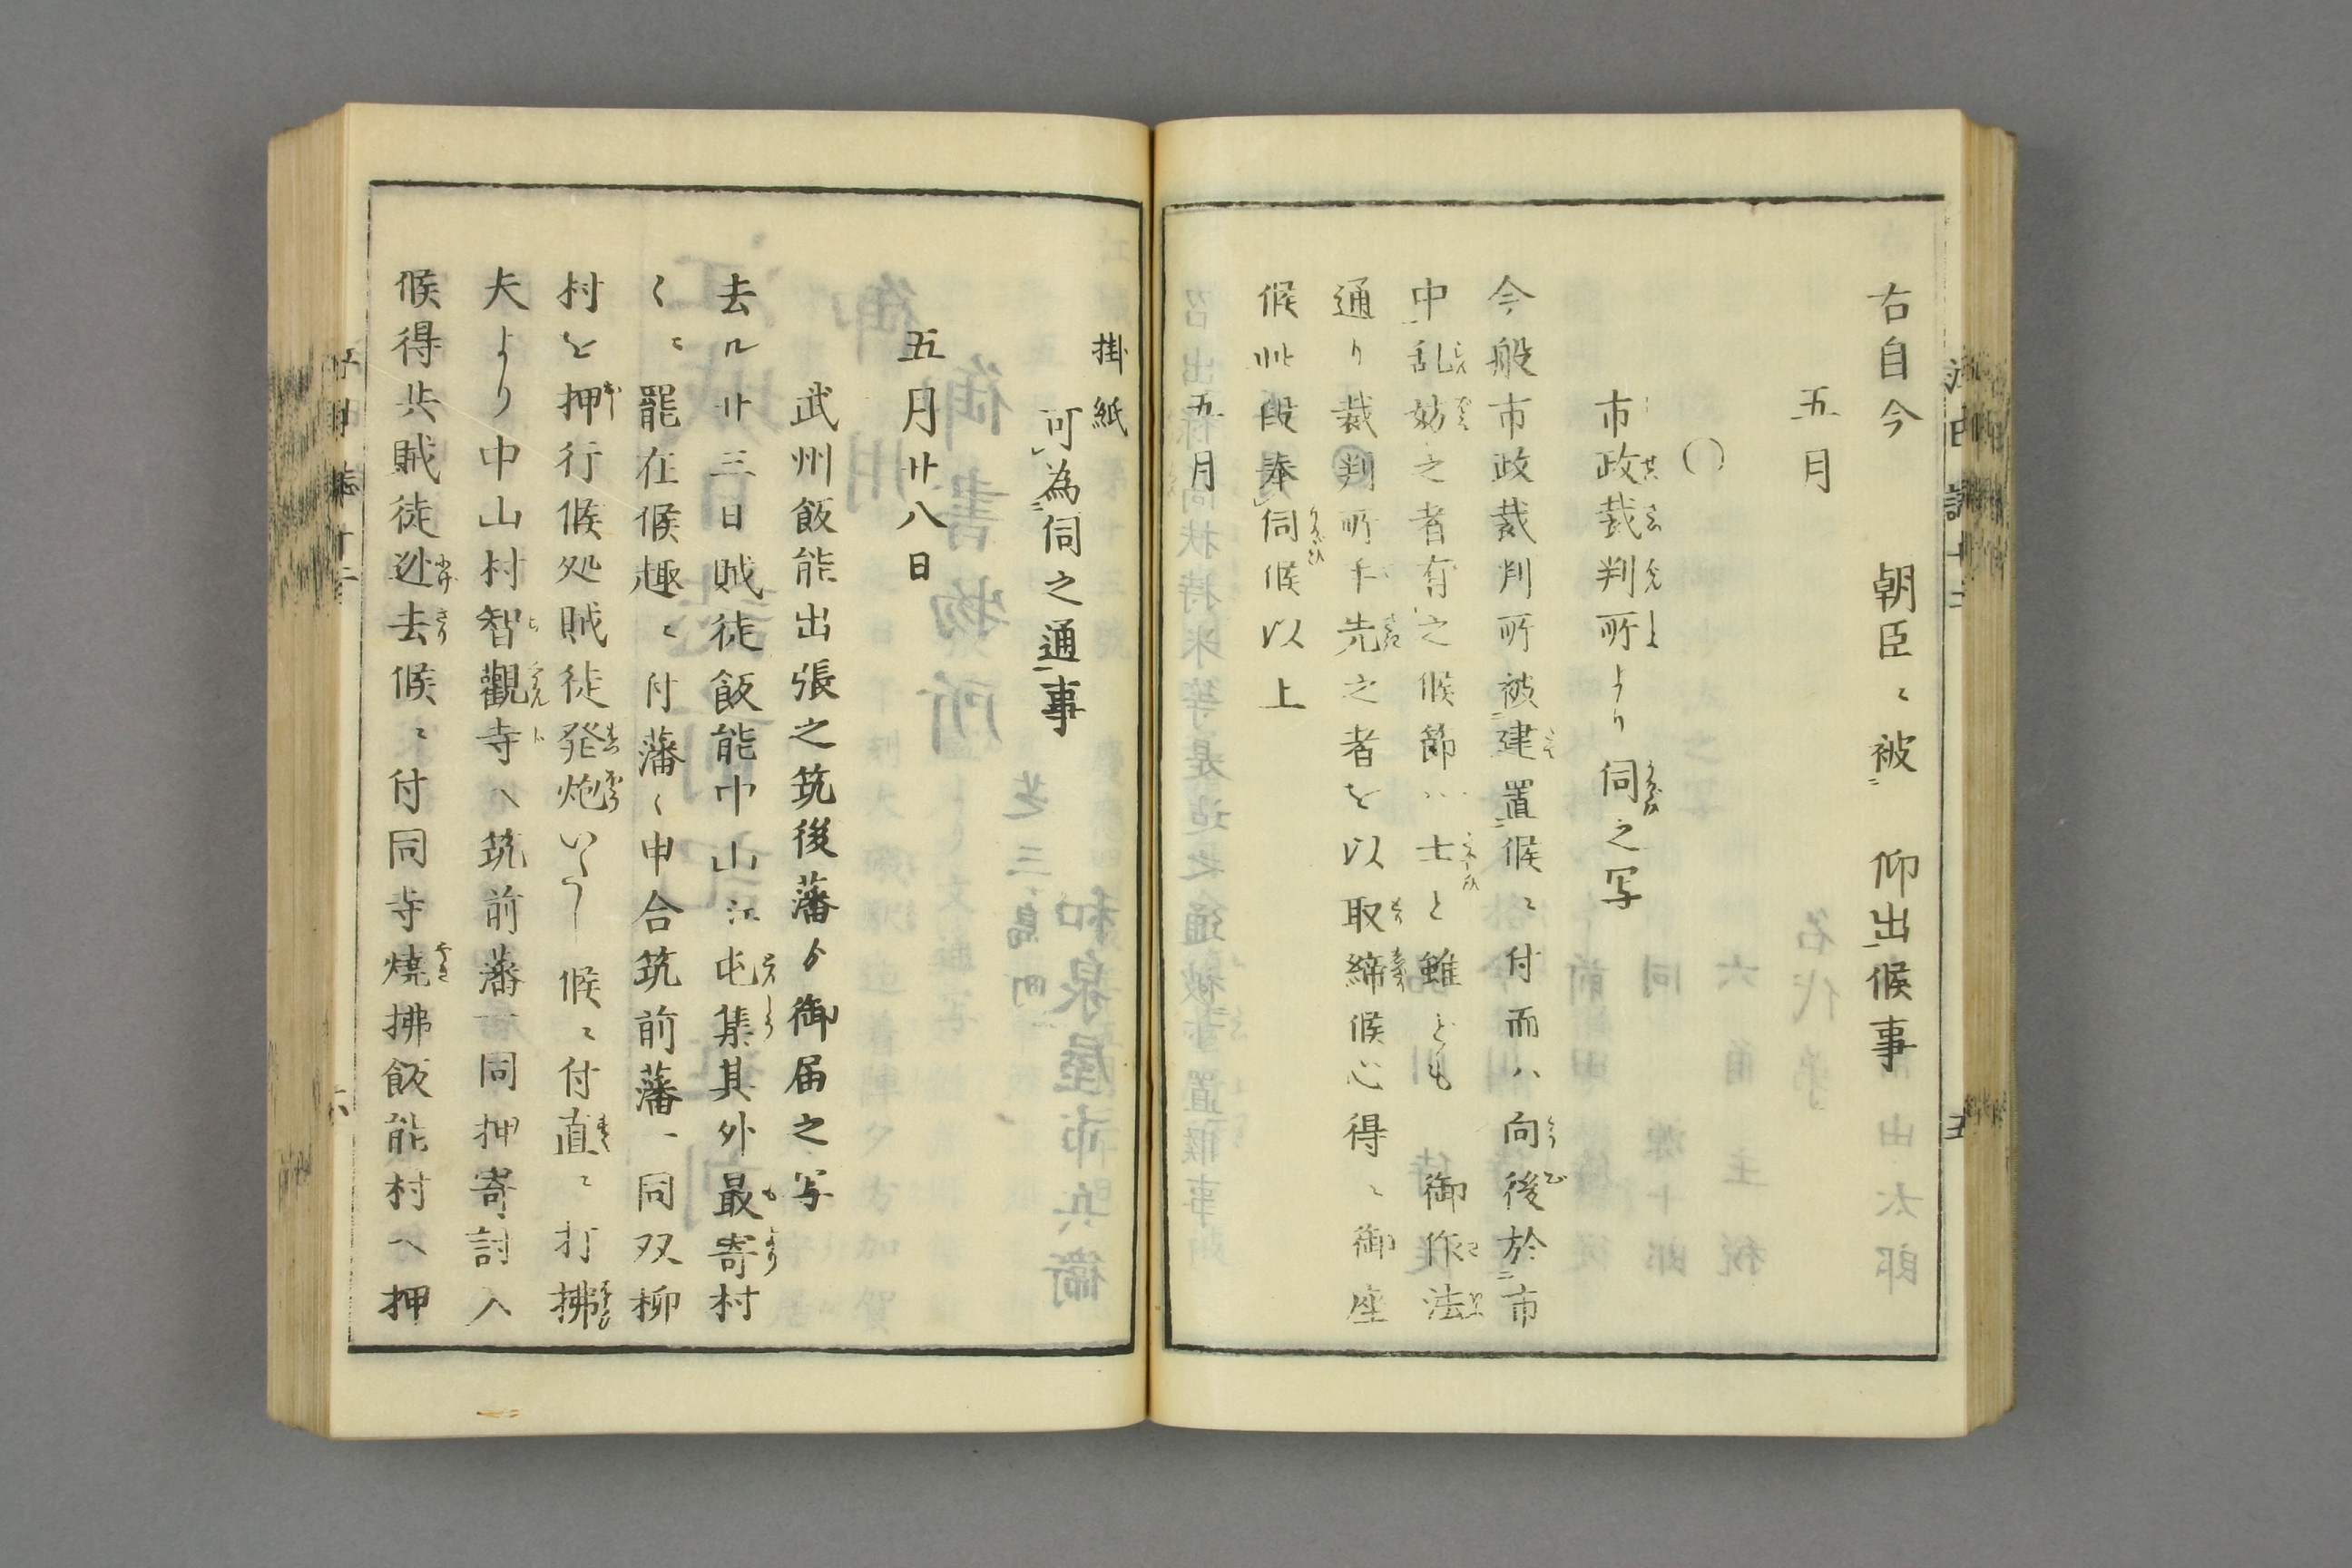 右自今　朝臣ニ被　仰出候事
五月
○
市政裁判所より伺之写
今般市政裁判所被建置候ニ付而ハ向後於市
中乱妨之者有之候節ハ士と雖とも　御作法
通り裁判所手先之者を以取締候心得ニ御座
候此段奉伺候以上
五月
掛紙
可為伺之通事
五月廿八日
武州飯能出張之筑後藩ゟ御届之写
去ル廿三日賊徒飯能中山江屯集其外最寄村
〱ニ罷在候趣ニ付藩〱申合筑前藩一同双柳
村を押行候処賊徒発炮いたし候ニ付直ニ打拂
夫より中山村智觀寺へ筑前藩同押寄討入
候得共賊徒迯去候ニ付同寺燒拂飯能村へ押